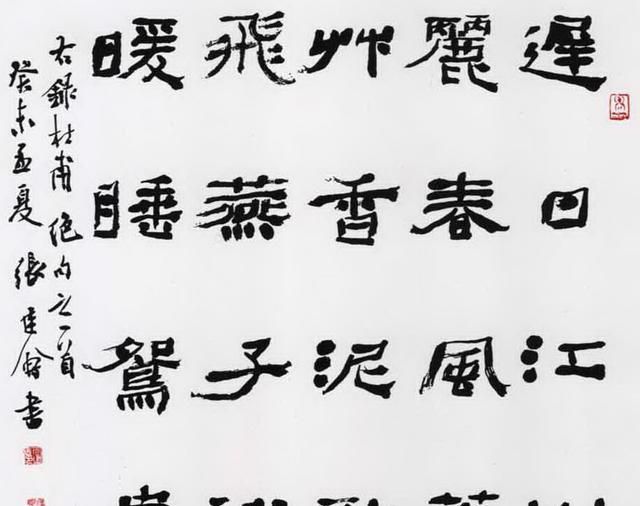 遲日江
麗春風
艸香泥
飛燕子
暖睡鴛
右録杜甫絶句之一首
癸未孟夏張建會書